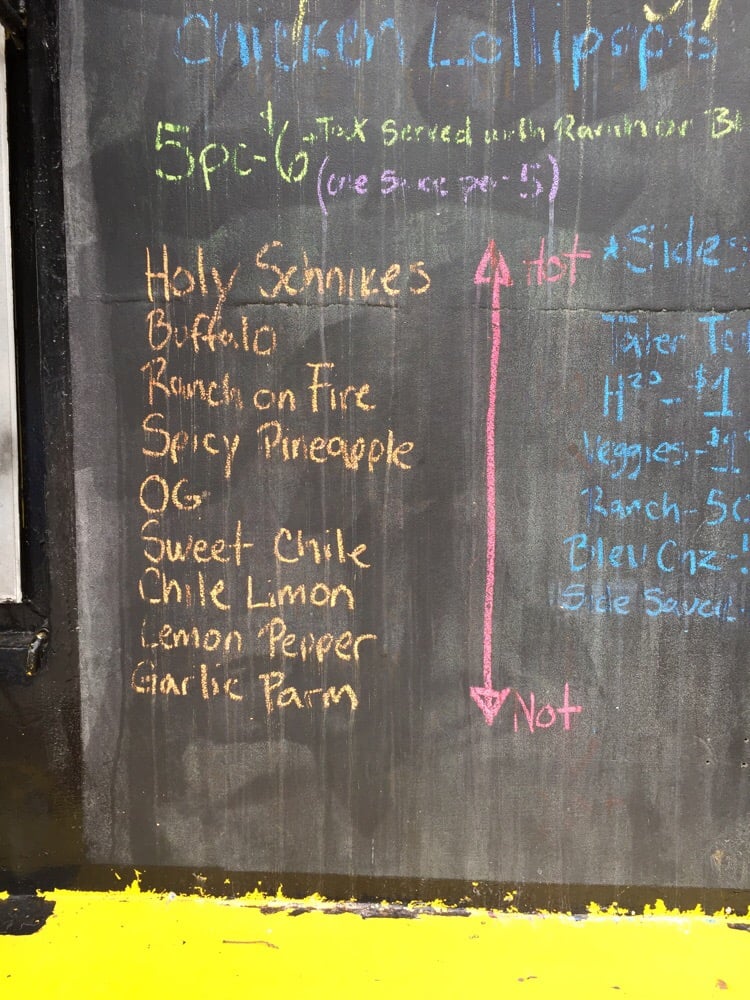 Chicken Lollipops
5pc-$6+Tax Served with Ranch or Bl
(one Sauce per 5)
Holy Schnikes
Buffalo
Ranch on Fire
Spicy Pineapple
OG
Sweet Chile
Chile Limon
Lemon Pepper
Garlic Parm
Hot
Not
*Sides
Tater To
H²⁰-$1
Veggies-$1
Ranch-50
Bleu Chz-
Side Sauce